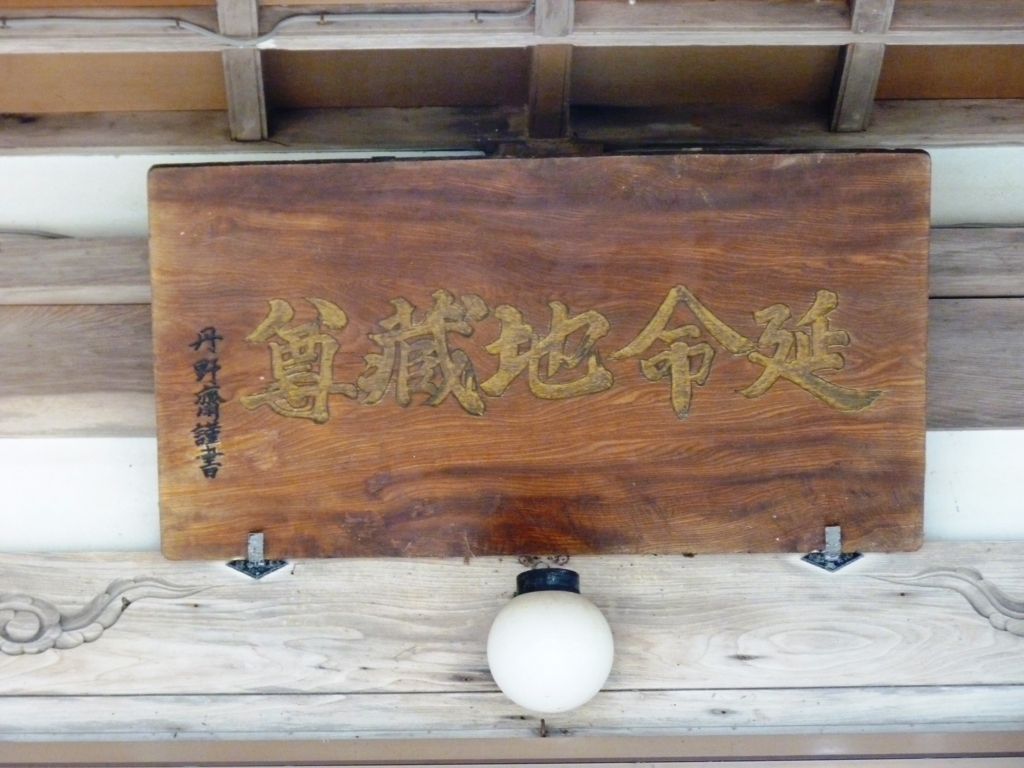 延命地蔵尊
丹野齋謹書